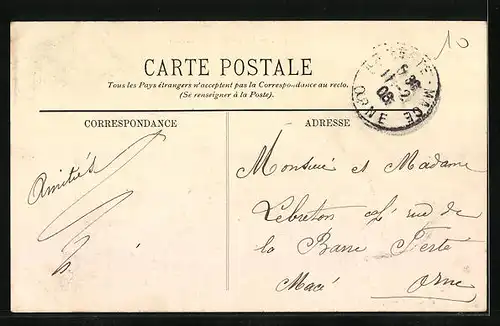 10
CARTE POSTALE
Tous les Pays étrangers n'acceptent pas la Correspondance au recto.
(Se renseigner à la Poste).
CORRESPONDANCE
ADRESSE
MACE
ORNE
08
Amitiés
Monsieur et Madame
Lebreton rue de
la Barre Ferté
Macé Orne